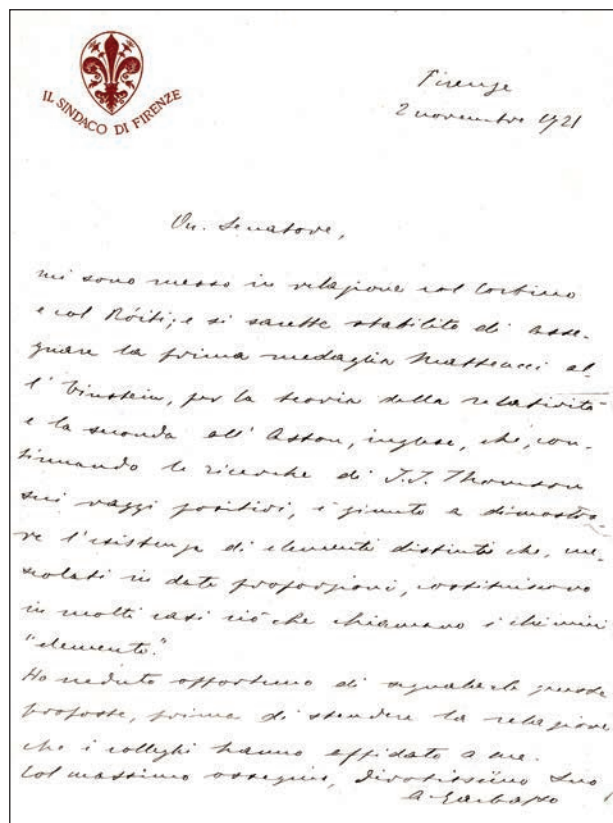 IL SINDACO DI FIRENZE
Firenze
2 novembre 1921
On. Senatore,
mi sono messo in relazione col Corbino
e col Ròiti; e si sarebbe stabilito di asse-
gnare la prima medaglia Matteucci al-
l'Einstein, per la teoria della relatività
e la seconda all'Aston, inglese, che, con-
tinuando le ricerche di J.J. Thomson
sui raggi positivi, è giunto a dimostra-
re l'esistenza di elementi distinti che, me-
scolati in date proporzioni, costituiscono
in molti casi ciò che chiamano i chimici
"elemento."
Ho veduto opportuno di segnalarle queste
proposte, prima di stendere la relazione
che i colleghi hanno affidato a me.
Col massimo ossequio, divotissimo Suo,
A Garbasso